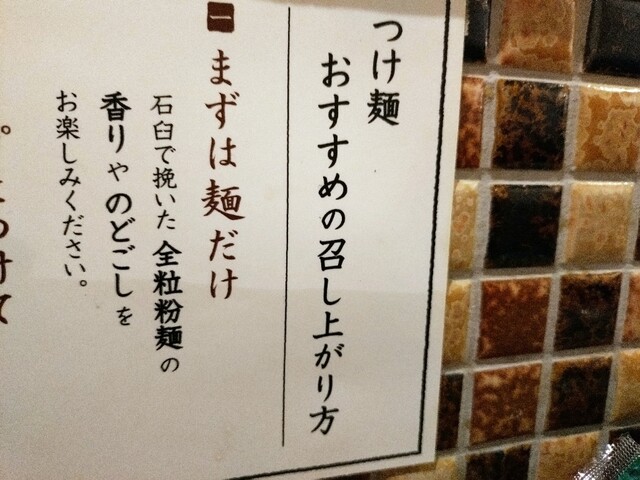 つけ麺
おすすめの召し上がり方
一
まずは麺だけ
石臼で挽いた全粒粉麺の
香りやのどごしを
お楽しみください。